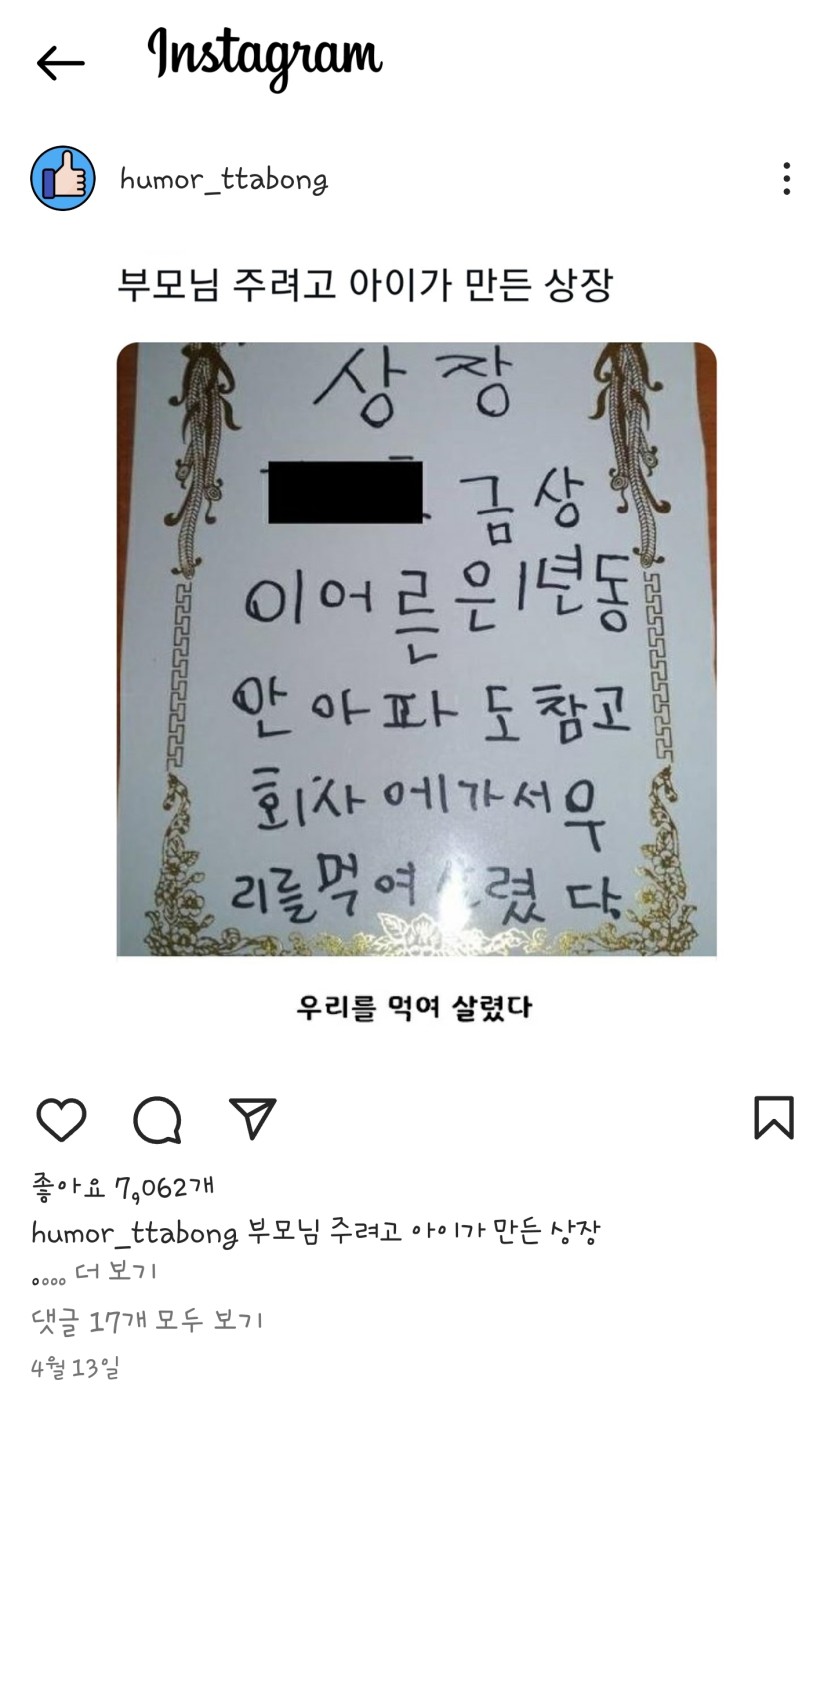 Instagram
humor_ttabong
부모님 주려고 아이가 만든 상장
상장
금상
이어른은1년동
안아파도참고
회사에가서우
리를먹여 렸다.
우리를 먹여 살렸다
좋아요 7,062개
humor_ttabong 부모님 주려고 아이가 만든 상장
.... 더 보기
댓글 17개 모두 보기
4월 13일